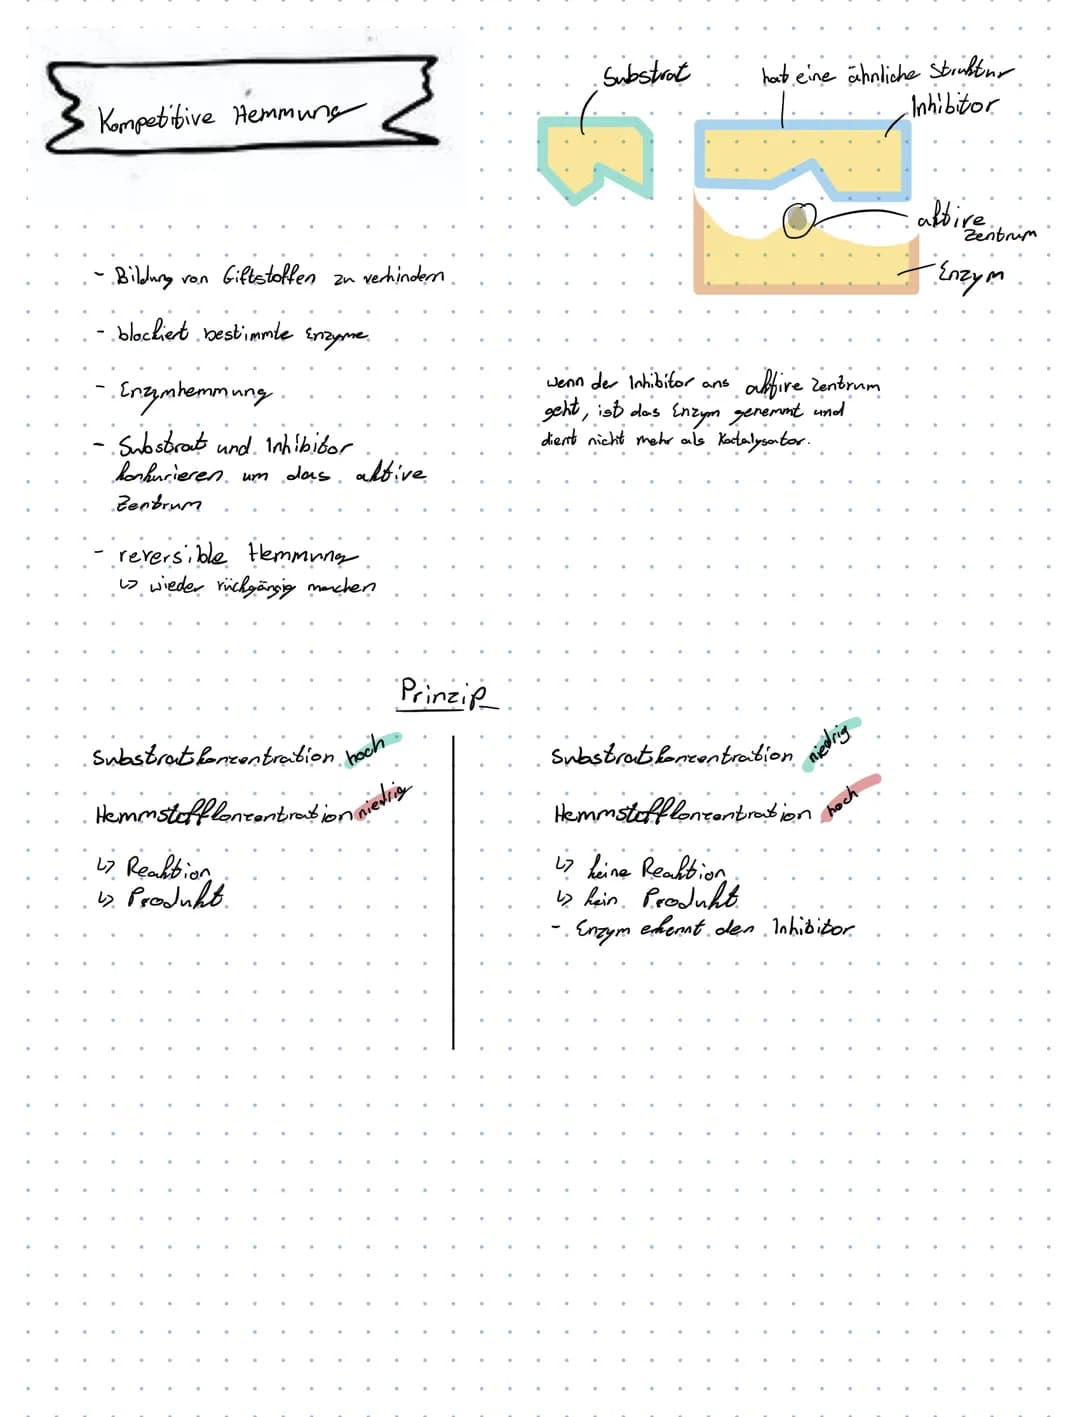 Kompetitive Hemmung
Substrat
hat eine ähnliche Struktur
Inhibitor
aktive
Zentrum
Enzym
- Bildung von Giftstoffen zu verhindern
- blockiert bestimmte Enzyme
- Enzymhemmung
- Substrat und Inhibitor
konkurieren um das aktive
Zentrum
- reversible Hemmung
↳ wieder rückgängig machen
wenn der Inhibitor ans aktive Zentrum
geht, ist das Enzym gehemmt und
dient nicht mehr als Katalysator.
Prinzip
Substratkonzentration hoch
Hemmstoffkonzentration niedrig
↳ Reaktion
↳ Produkt
Substratkonzentration niedrig
Hemmstoffkonzentration hoch
↳ keine Reaktion
↳ kein Produkt
- Enzym erkennt den Inhibitor